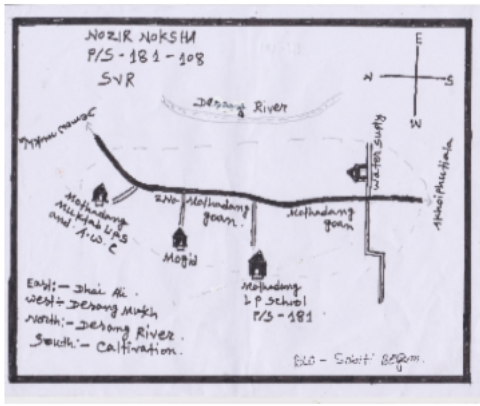 NOZIR NOKSHA
P/S - 181 - 108
SVR
E
N
S
W
Desang River
Water Supply
2.No Mothadang
goan.
Mothadang
goan
Mothadang
Muktab L.P.S
and A.W.C
Mogid
Mothadang
L P School
P/S - 181
East:- Dhai Ali
West- Desang Mukh
North:- Desang River.
South:- Caltivation.
BLO - Sobiti Begum.